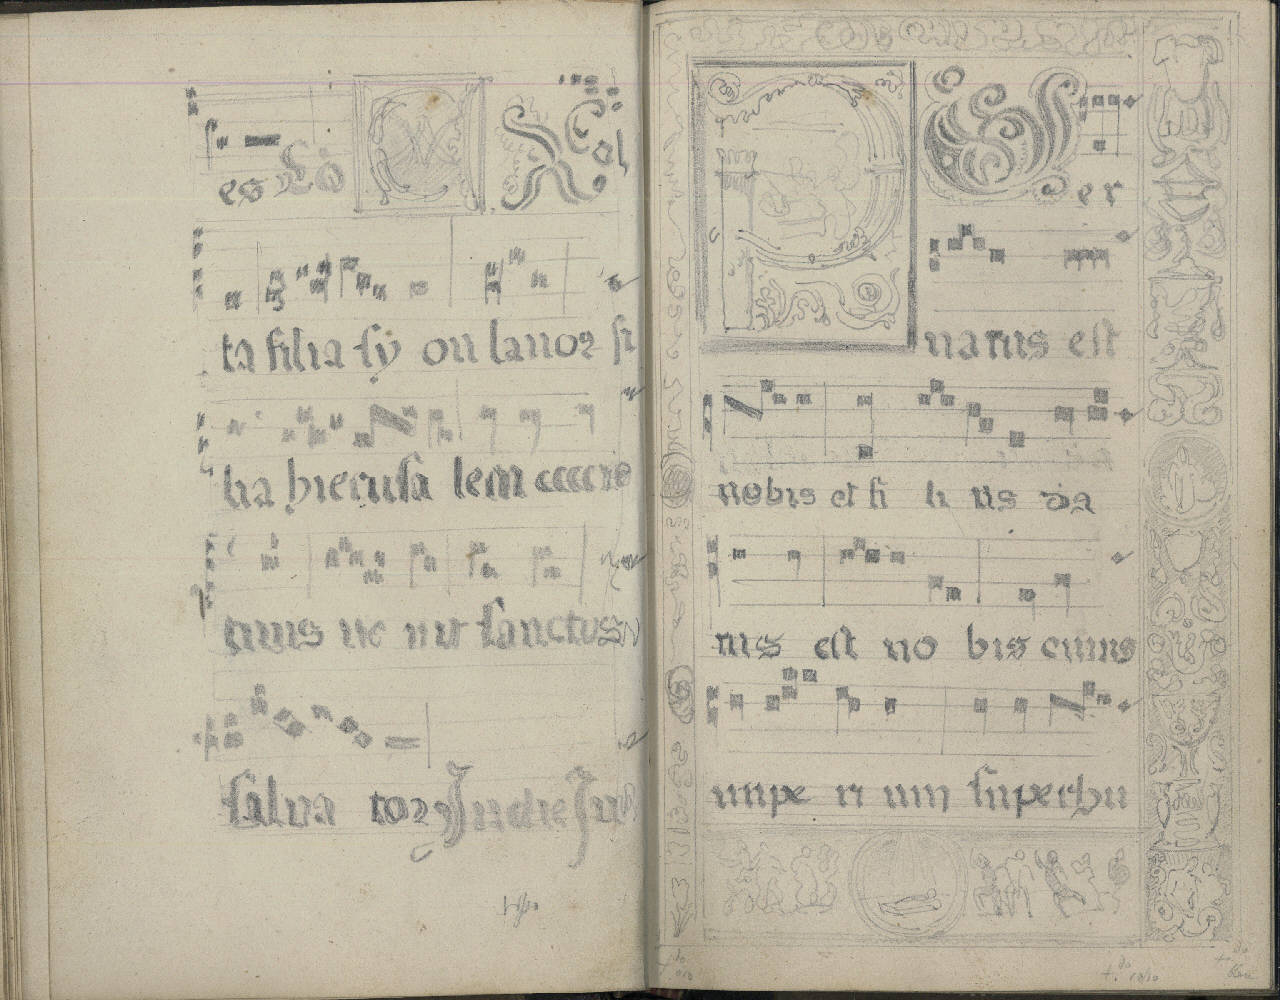 es
ta filia sy on lauoꝛ si
lia hierusa lem ecce re
tuus ue nit sanctus
salua toꝛ In die
er
natus est
nobis et fi li us da
tus est no bis cuius
impe ri um super hu